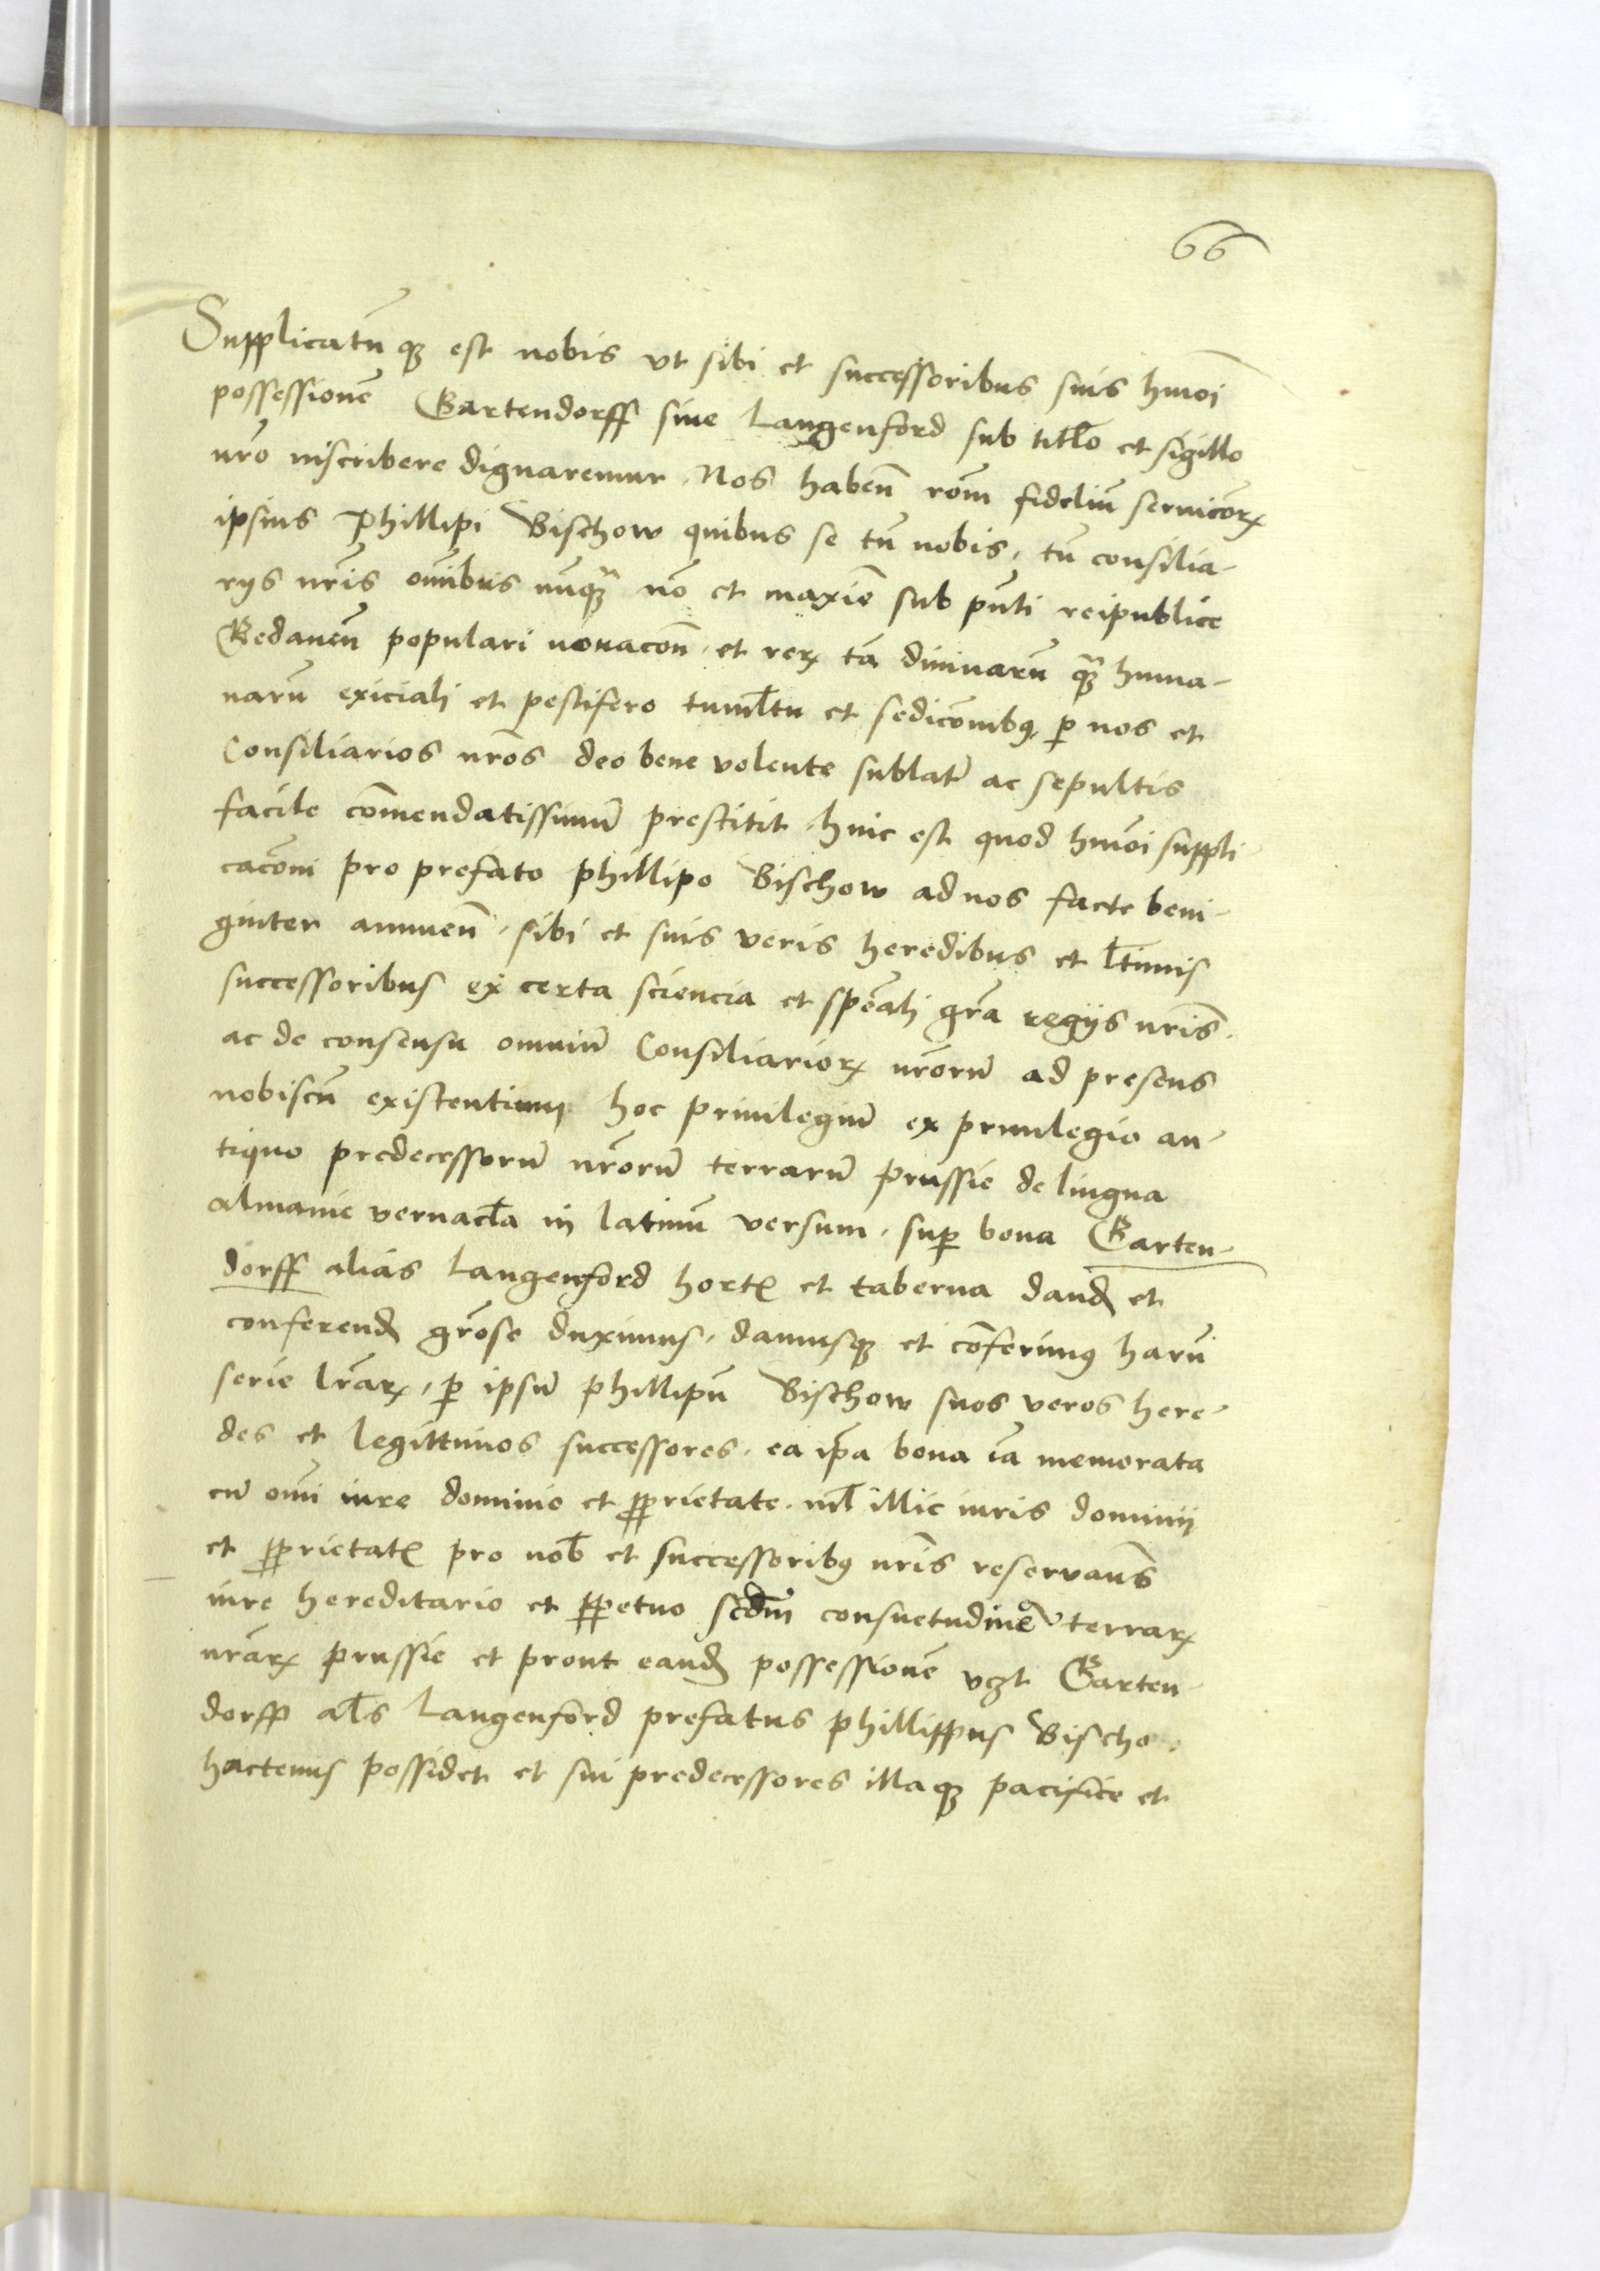 66
Supplicatū qȝ est nobis vt sibi et successoribus suis hmōi
possessionē Gartendorff siue Langenford sub titl̄o et sigillo
nr̄o inscribere dignaremur. Nos habeñ rōm fideliū seruicōrꝝ
ipsius Phillipi Bischow quibus se tū nobis, tū consilia-
rijs nr̄is om̄ibus nūqȝ nō et maxīe sub pn̄ti reipublice
Gedaneñ populari nouacōn, et rerꝝ tā diuinarū qȝ huma-
narū exiciali et pestifero tumul̄tu et sedicōnibꝰ ꝑ nos et
Consiliarios nr̄os deo bene volente sublat̄ ac sepultis
facile cōmendatissimū prestitit, hinc est quod hmōi suppli-
cacōni pro prefato Phillipo Bischow ad nos facte beni-
gniter annueñ, sibi et suis veris heredibus et l̄timis
successoribus ex certa sciencia et spēali gr̄a regijs nr̄is.
ac de consensu omniū Consiliariorꝝ nr̄orū ad presens
nobiscū existentium hoc priuilegiū ex priuilegio an-
tiquo predecessorū nr̄orū terrarū Prussie de lingua
almanie vernacl̄a in latinū versum, suꝑ bona Garten-
dorff alias Langenford hortꝭ et taberna danđ et
conferenđ grōse duximus, damusqȝ et cōferimꝰ harū
serie lr̄arꝝ, ꝑ ipsū Phillipū Bischow suos veros here-
des et legittimos successores, ea ip̄a bona iā memorata
cū om̄i iure dominio et ꝓprietate, nil̄ illic iuris dominij
et ꝓprietatꝭ pro nob̄ et successoribꝰ nr̄is reseruan̄s
iure hereditario et ꝑpetuo scđm consuetudinē terrarꝝ
nr̄arꝝ Prussie et prout eanđ possessionē vꝫt Garten-
dorff al̄s Langenford prefatus Phillippus Bischo
hactenus possidet et sui predecessores illaqȝ pacifice et